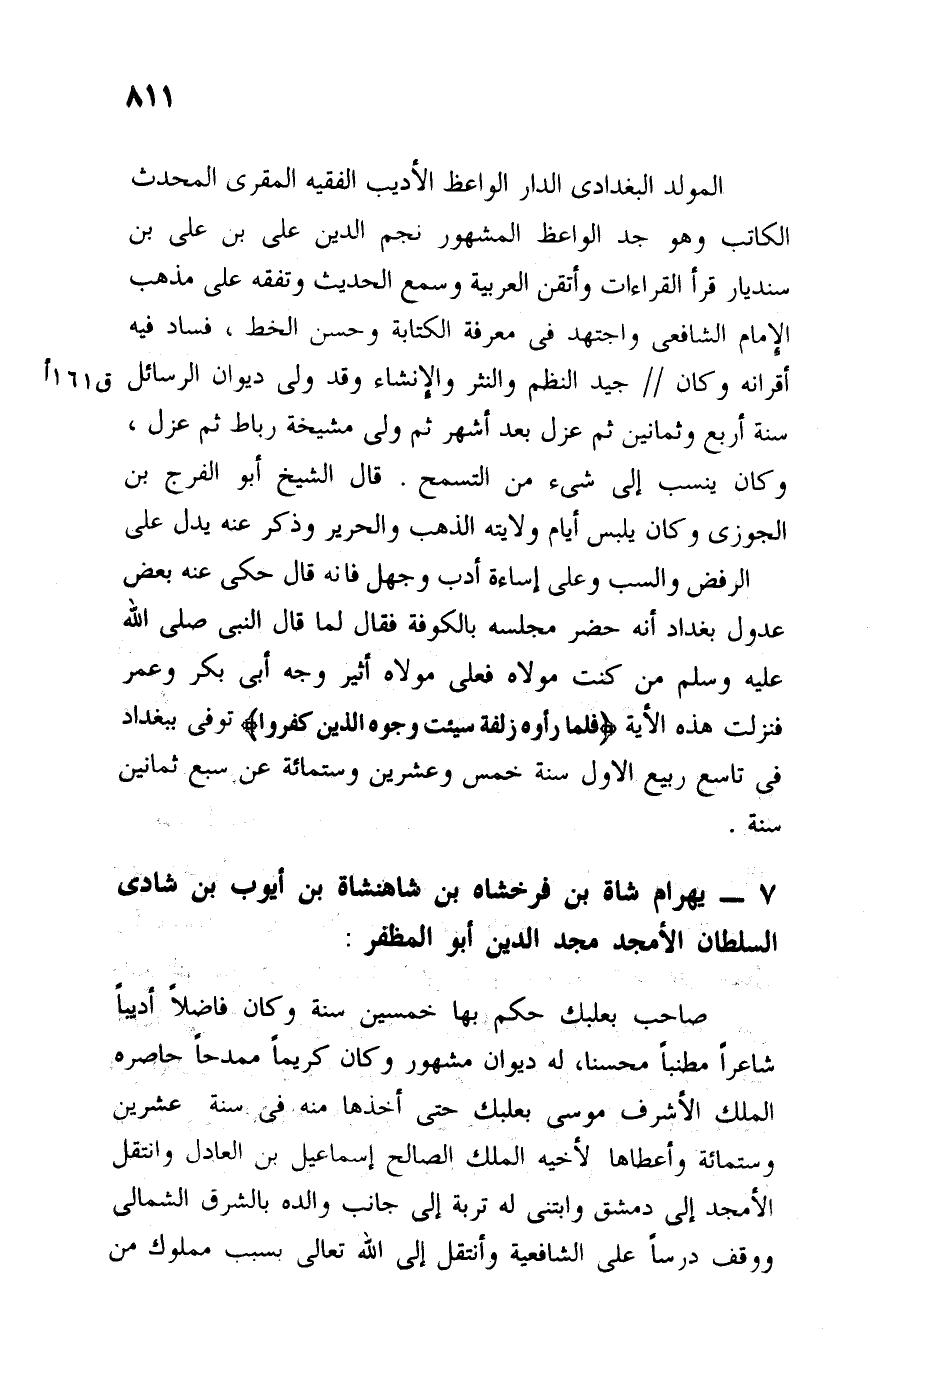 ٨١١
المولد البغدادى الدار الواعظ الأديب الفقيه المقرى المحدث
الكاتب وهو جد الواعظ المشهور نجم الدين على بن على بن
سنديار قرأ القراءات وأتقن العربية وسمع الحديث وتفقه على مذهب
الإمام الشافعى واجتهد فى معرفة الكتابة وحسن الخط ، فساد فيه
أقرانه وكان // جيد النظم والنثر والإنشاء وقد ولى ديوان الرسائل ق١٦١أ
سنة أربع وثمانين ثم عزل بعد أشهر ثم ولى مشيخة رباط ثم عزل ،
وكان ينسب إلى شىء من التسمح . قال الشيخ أبو الفرج بن
الجوزى وكان يلبس أيام ولايته الذهب والحرير وذكر عنه يدل على
الرفض والسب وعلى إساءة أدب وجهل فانه قال حكى عنه بعض
عدول بغداد أنه حضر مجلسه بالكوفة فقال لما قال النبى صلى الله
عليه وسلم من كنت مولاه فعلى مولاه أثير وجه أبى بكر وعمر
فنزلت هذه الأية ﴿فلما رأوه زلفة سيئت وجوه الذين كفروا﴾ توفى ببغداد
فى تاسع ربيع الاول سنة خمس وعشرين وستمائة عن سبع ثمانين
سنة .
٧ ــ يهرام شاة بن فرخشاه بن شاهنشاة بن أيوب بن شادى
السلطان الأمجد مجد الدين أبو المظفر :
صاحب بعلبك حكم بها خمسين سنة وكان فاضلاً أديباً
شاعراً مطنباً محسنا، له ديوان مشهور وكان كريماً ممدحاً حاصره
الملك الأشرف موسى بعلبك حتى أخذها منه فى سنة عشرين
وستمائة وأعطاها لأخيه الملك الصالح إسماعيل بن العادل وانتقل
الأمجد إلى دمشق وابتنى له تربة إلى جانب والده بالشرق الشمالى
ووقف درساً على الشافعية وأنتقل إلى الله تعالى بسبب مملوك من